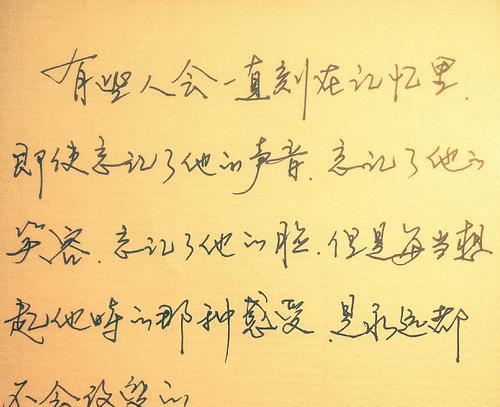 有些人会一直刻在记忆里.
即使忘记了他的声音.忘记了他的
笑容.忘记了他的脸.但是每当想
起他时的那种感受.是永远都
不会改变的